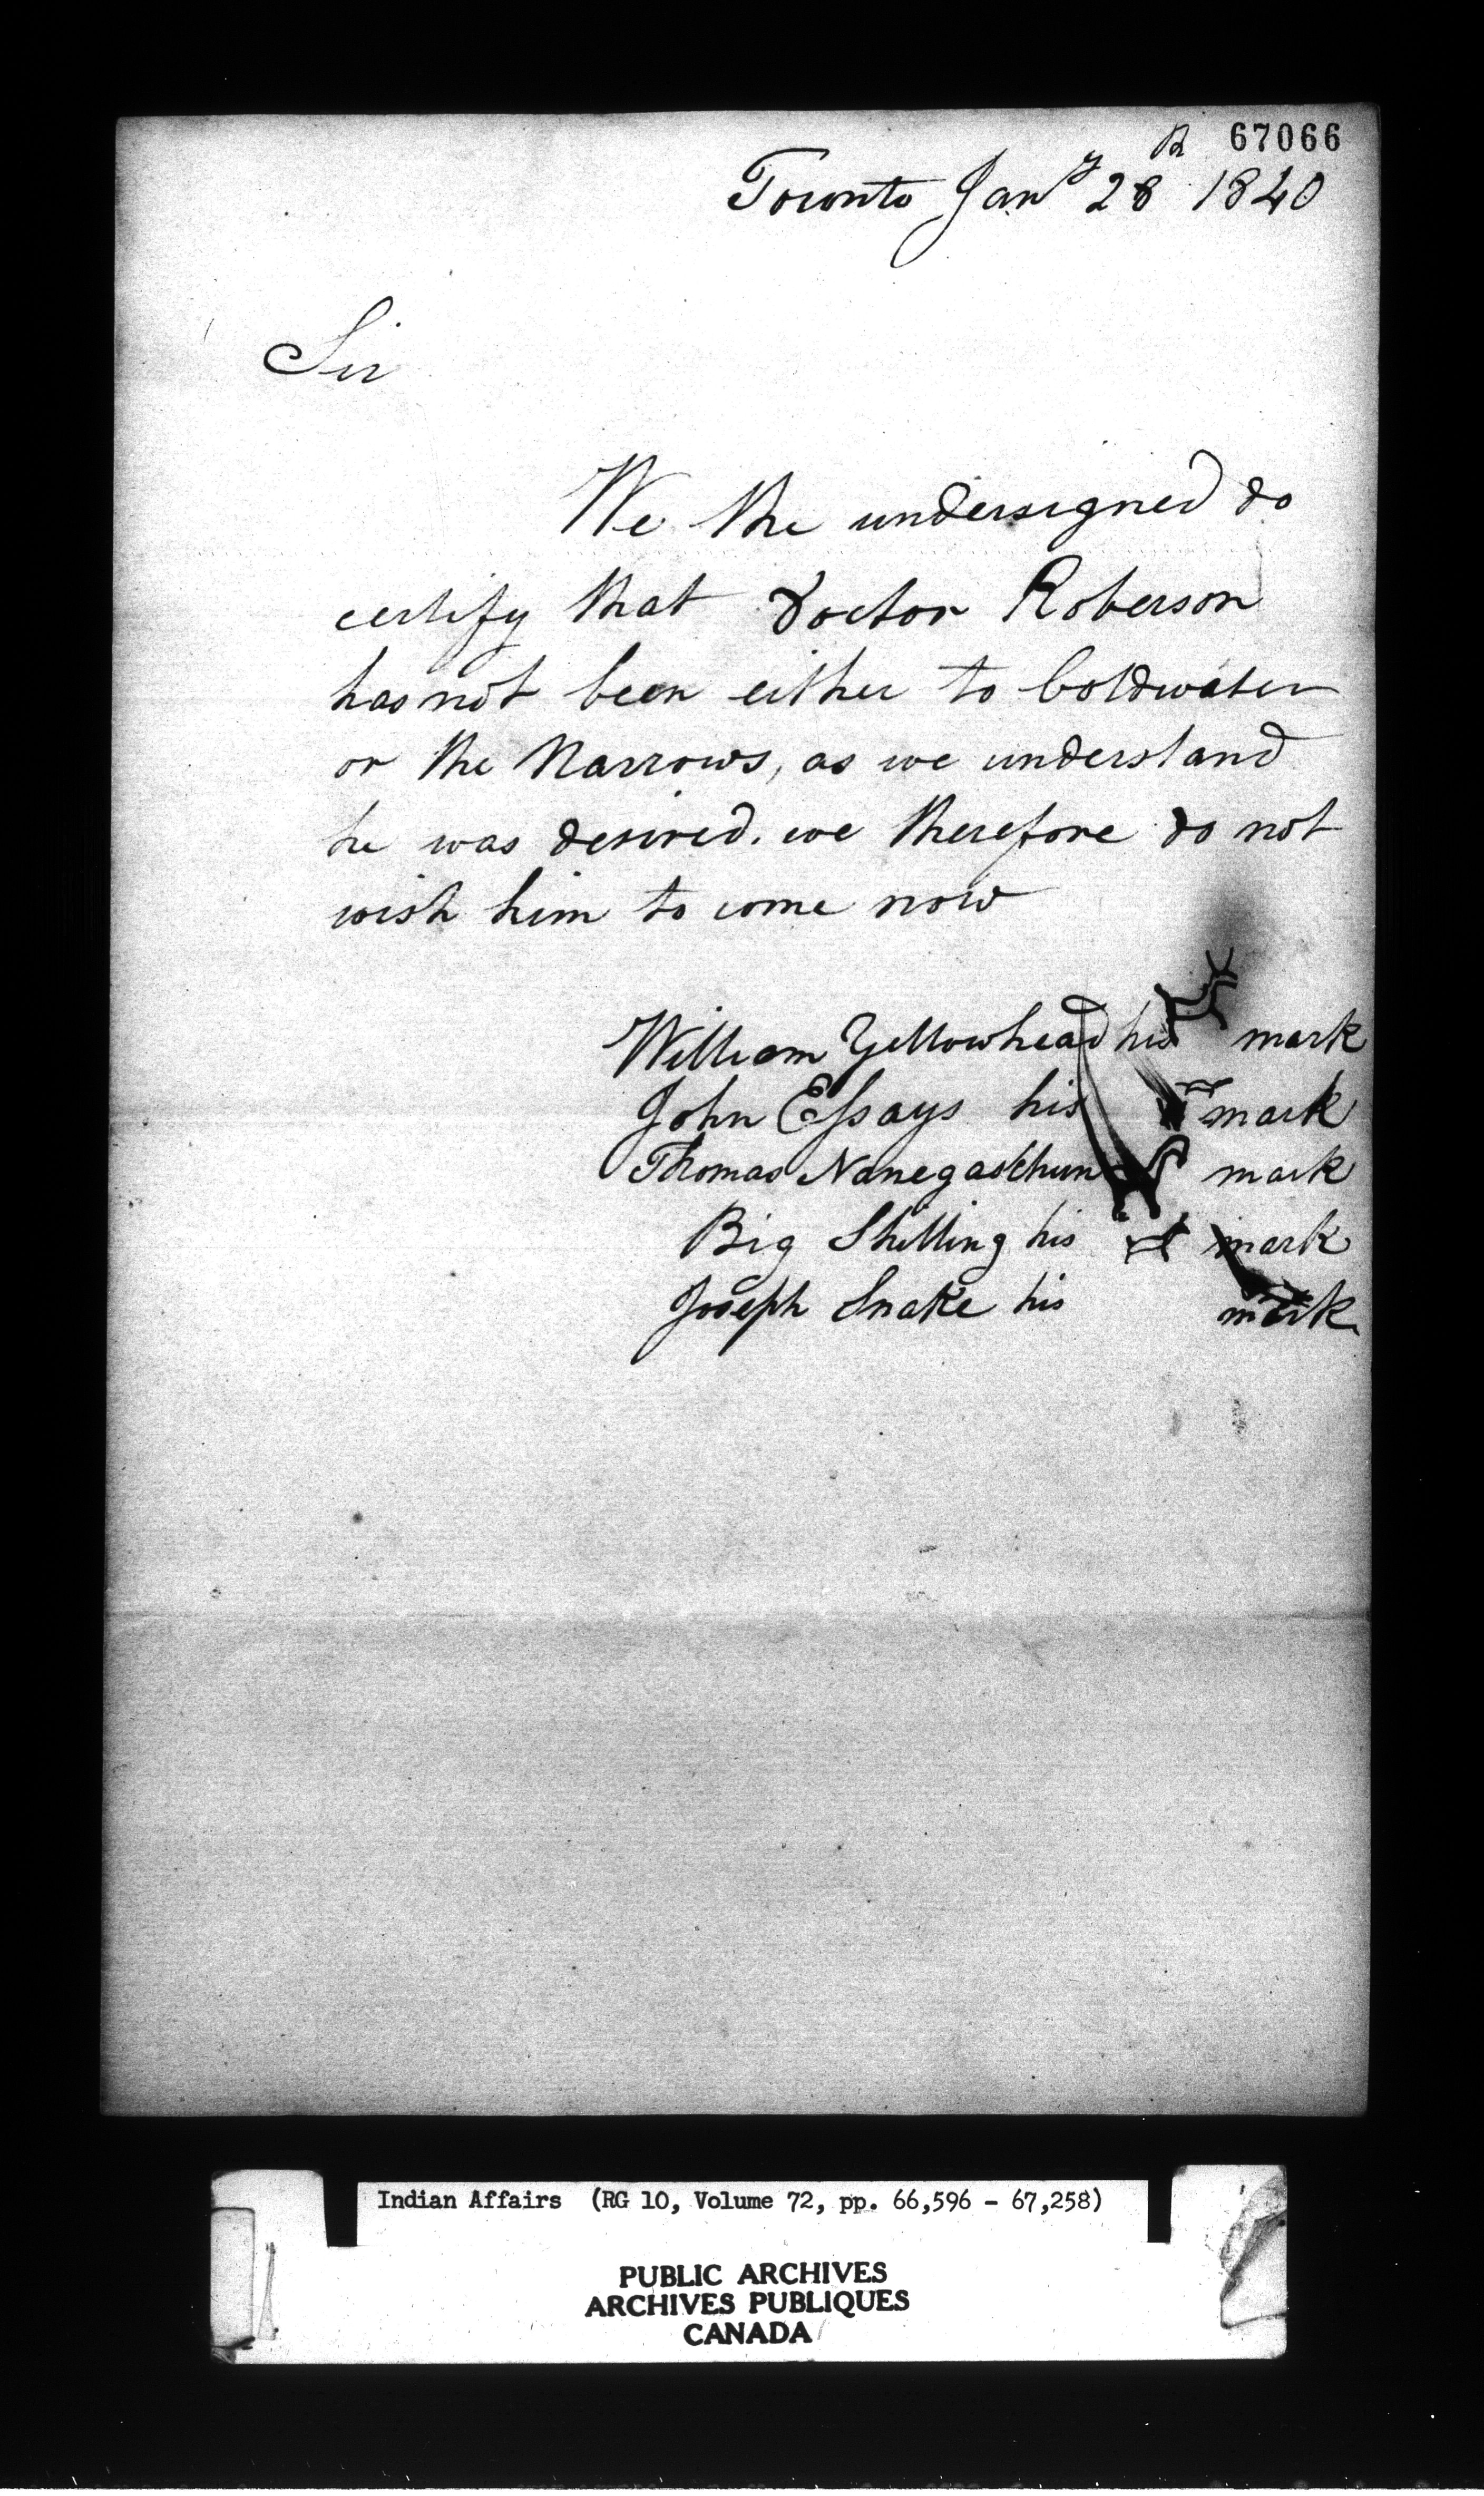 R 67066
Toronto Jany 28 1840
Sir
We the undersigned do
certify that Doctor Roberson
has not been either to Coldwater
or the Narrows, as we understand
he was desired. we therefore do not
wish him to come now
William Yellowhead his mark
John Essays his mark
Thomas Nanegaschun mark
Big Shilling his mark
Joseph Snake his mark
Indian Affairs (RG 10, Volume 72, pp. 66,596 - 67,258)
PUBLIC ARCHIVES
ARCHIVES PUBLIQUES
CANADA